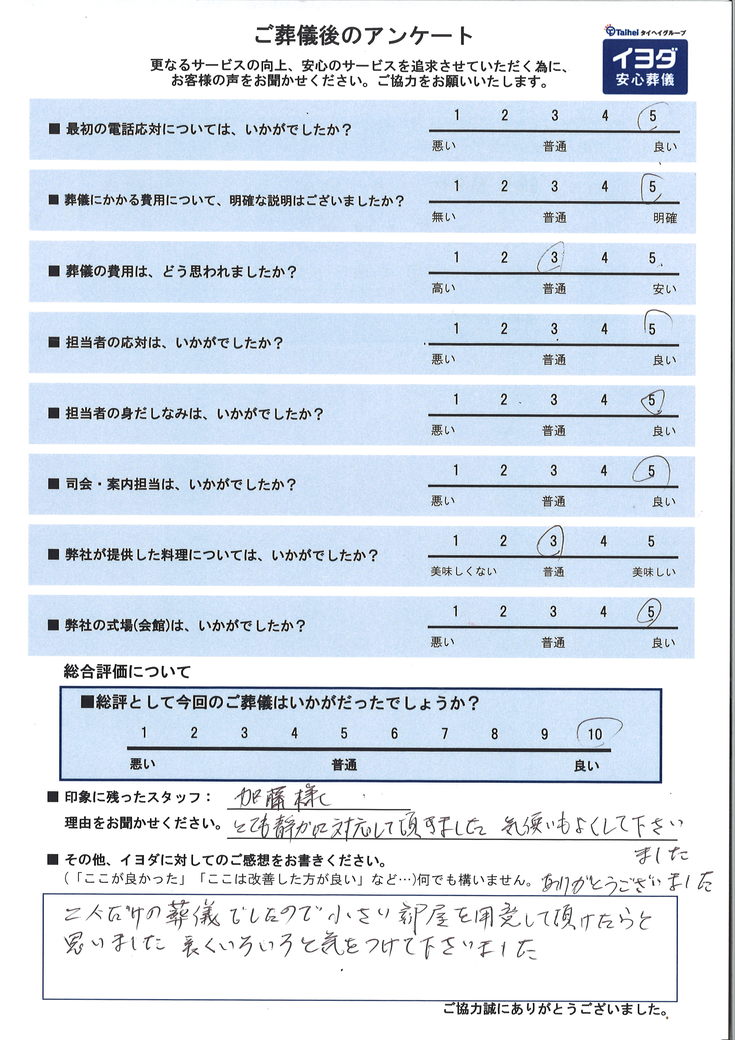 ご葬儀後のアンケート
Taihei タイヘイグループ
イヨダ
安心葬儀
更なるサービスの向上、安心のサービスを追求させていただく為に、
お客様の声をお聞かせください。ご協力をお願いいたします。
■ 最初の電話応対については、いかがでしたか？
1 2 3 4 5
悪い 普通 良い
■ 葬儀にかかる費用について、明確な説明はございましたか？
1 2 3 4 5
無い 普通 明確
■ 葬儀の費用は、どう思われましたか？
1 2 3 4 5
高い 普通 安い
■ 担当者の応対は、いかがでしたか？
1 2 3 4 5
悪い 普通 良い
■ 担当者の身だしなみは、いかがでしたか？
1 2 3 4 5
悪い 普通 良い
■ 司会・案内担当は、いかがでしたか？
1 2 3 4 5
悪い 普通 良い
■ 弊社が提供した料理については、いかがでしたか？
1 2 3 4 5
美味しくない 普通 美味しい
■ 弊社の式場(会館)は、いかがでしたか？
1 2 3 4 5
悪い 普通 良い
総合評価について
■総評として今回のご葬儀はいかがだったでしょうか？
1 2 3 4 5 6 7 8 9 10
悪い 普通 良い
■ 印象に残ったスタッフ： 加藤様
理由をお聞かせください。 とても静かに対応して頂きました 気使いもよくして下さい
ました
■ その他、イヨダに対してのご感想をお書きください。
(「ここが良かった」「ここは改善した方が良い」など…)何でも構いません。 ありがとうございました
二人だけの葬儀でしたので小さい部屋を用意して頂けたらと
思いました 良くいろいろと気をつけて下さいました
ご協力誠にありがとうございました。